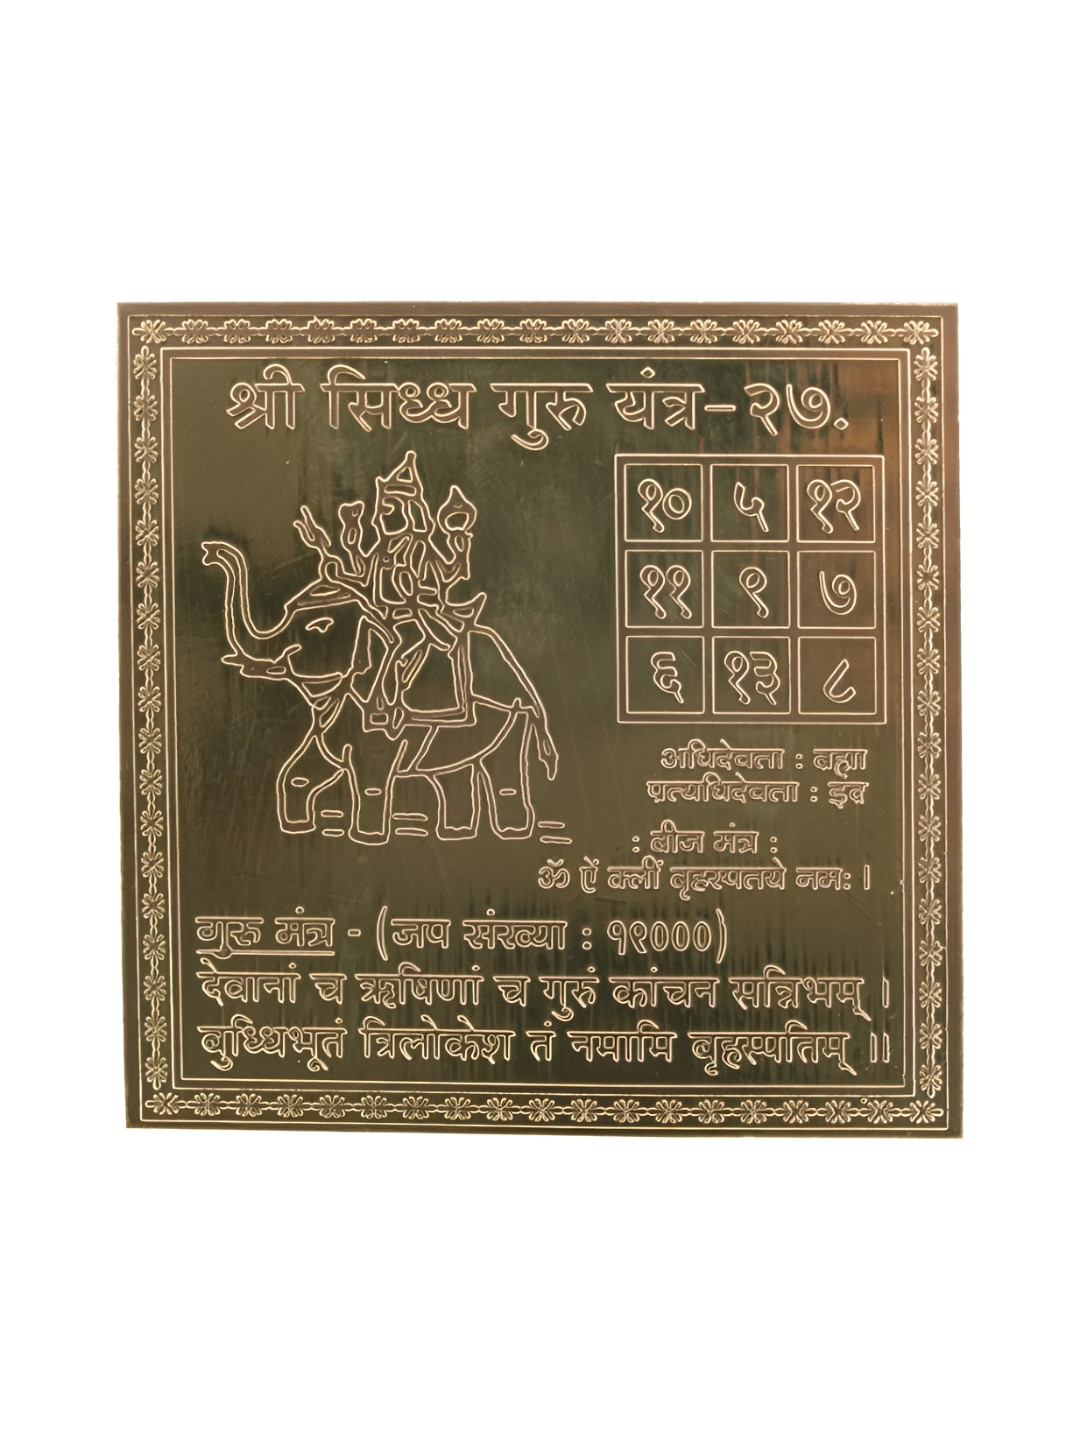 श्री सिध्ध गुरु यंत्र-२७.
१० ५ १२
११ ९ ७
६ १३ ८
अधिदेवता : ब्रह्मा
प्रत्यधिदेवता : इंद्र
: बीज मंत्र :
ॐ ऐं क्लीं बृहस्पतये नमः ।
गुरु मंत्र - (जप संख्या : १९०००)
देवानां च ऋषिणां च गुरुं कांचन सन्निभम् ।
बुध्धिभूतं त्रिलोकेश तं नमामि बृहस्पतिम् ॥